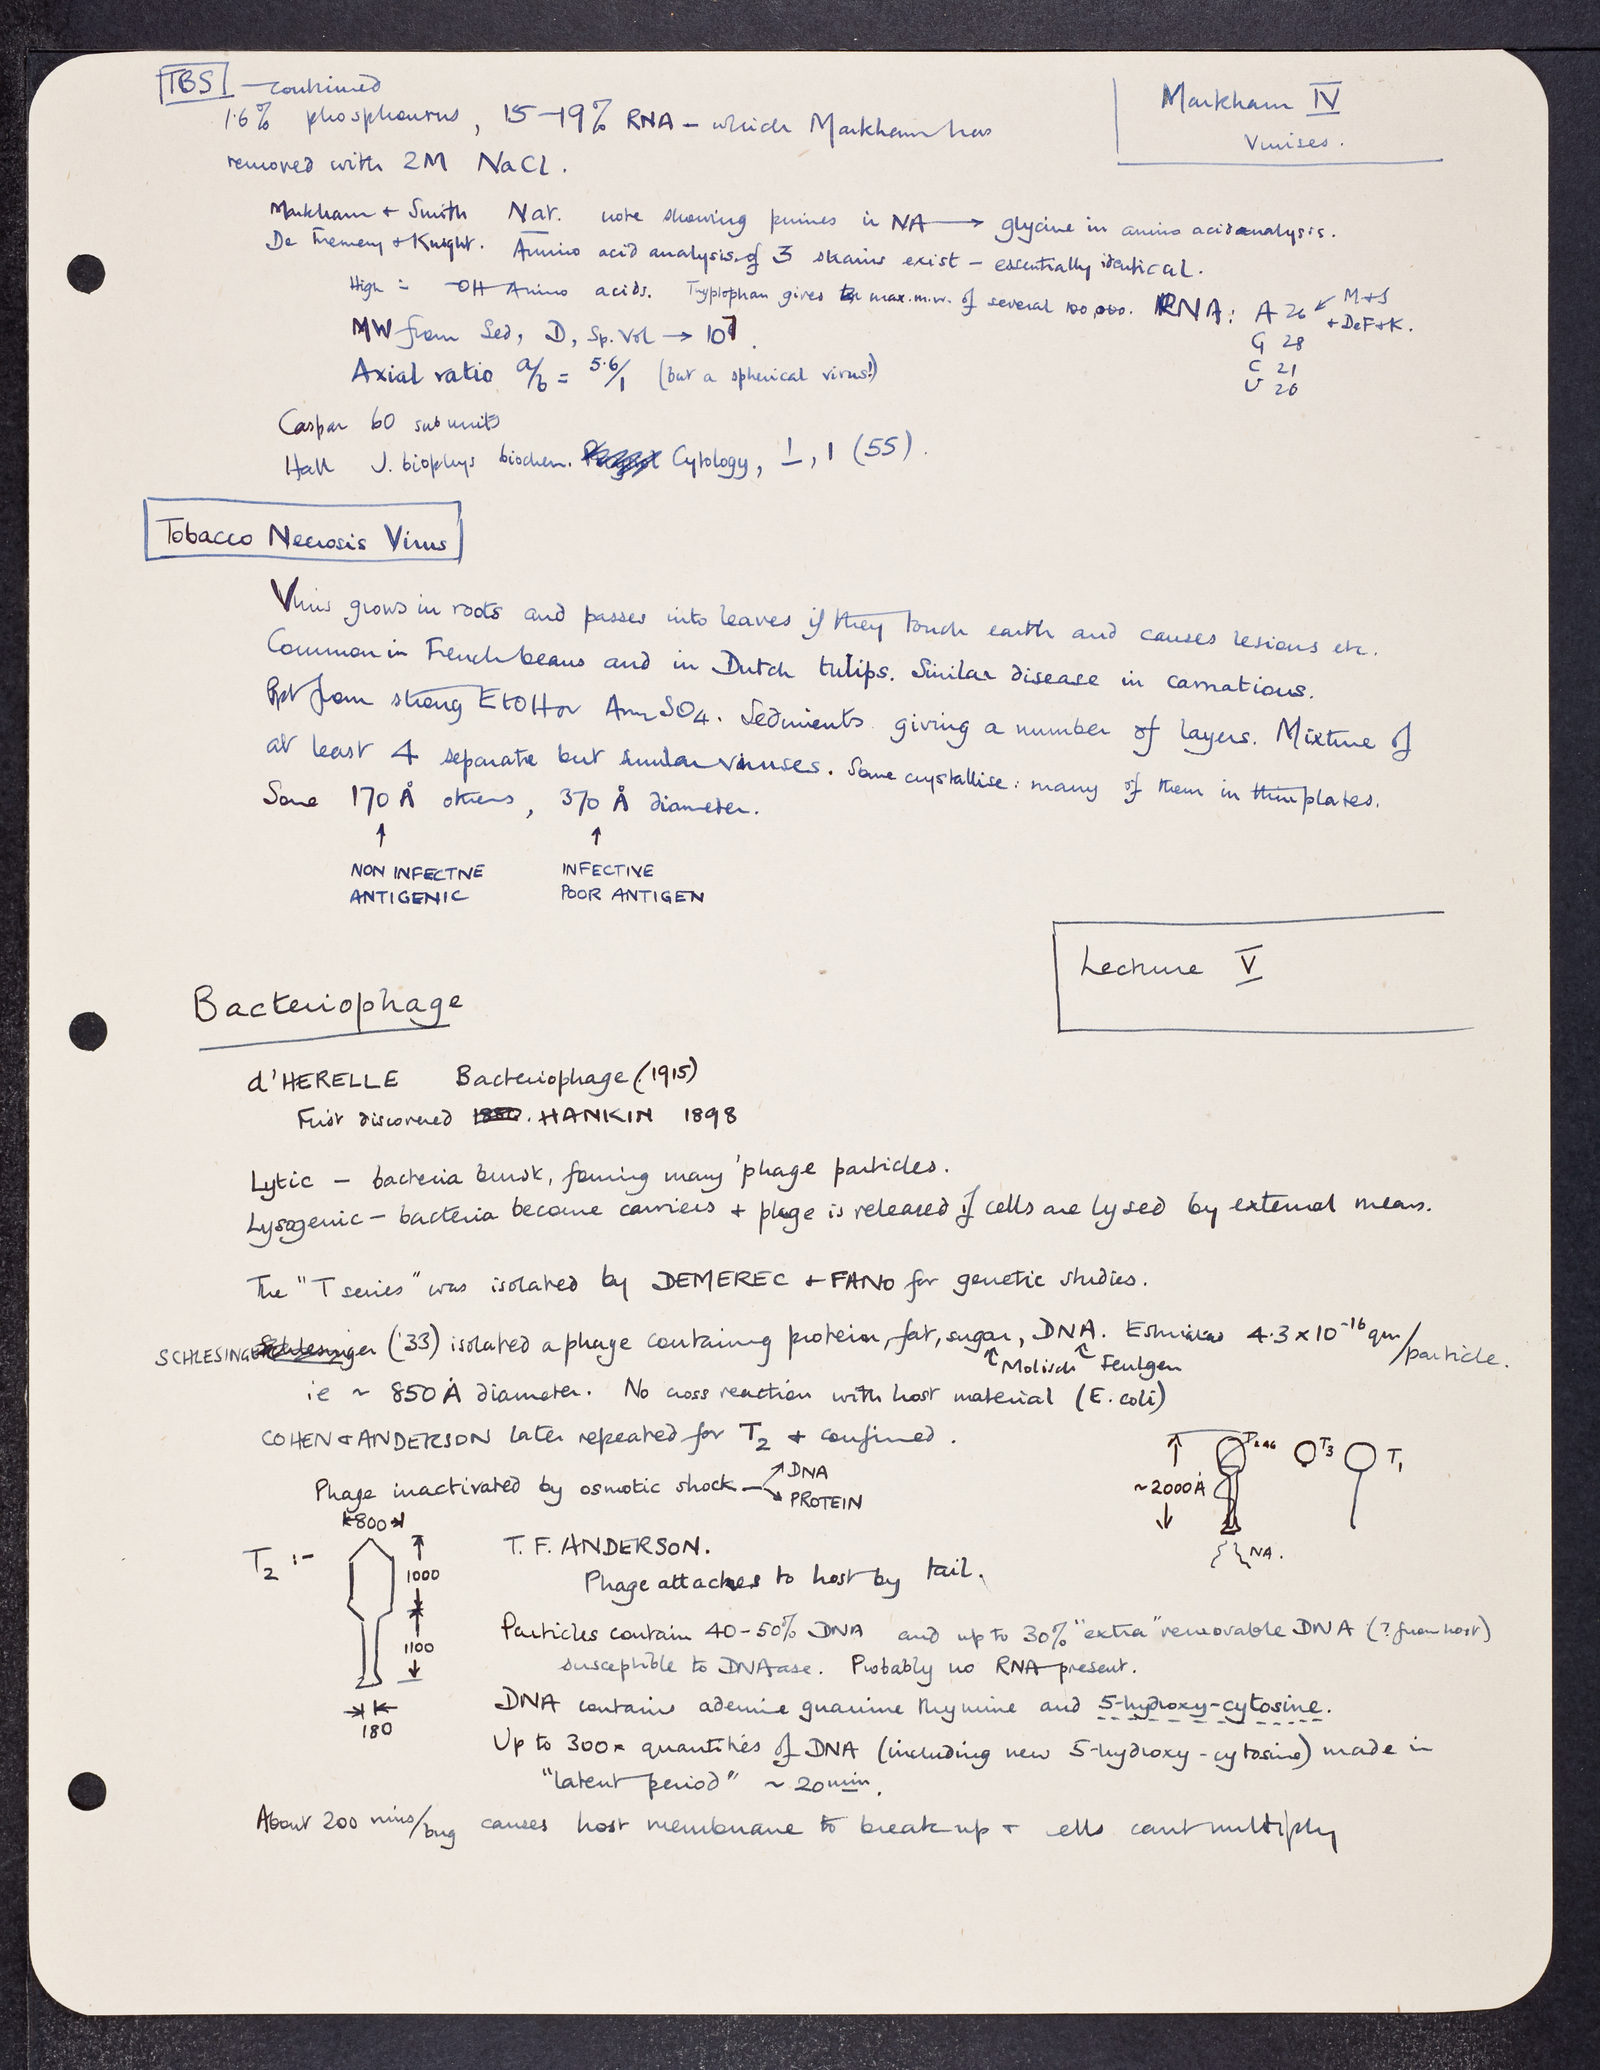 TBS — continued
Markham IV
Viruses.
1.6% phosphorus, 15–19% RNA – which Markham has
removed with 2M NaCl.
Markham + Smith Nat. note showing purines in NA → glycine in amino acid analysis.
De Fremery + Knight. Amino acid analysis of 3 strains exist – essentially identical.
High = –OH Amino acids. Tryptophan gives max. m.w. of several 100,000. RNA: A 26 ↙ M+S
+ DeF+K.
G 28
C 21
U 26
MW from Sed, D, Sp. Vol → 10⁷.
Axial ratio a/b = 5.6/1 (but a spherical virus!)
Caspar 60 subunits
Hall J. biophys biochem. Cytology, 1, 1 (55).
Tobacco Necrosis Virus
Virus grows in roots and passes into leaves if they touch earth and causes lesions etc.
Common in French beans and in Dutch tulips. Similar disease in carnations.
Ppt from strong EtOH or Am SO4. Sediments giving a number of layers. Mixture of
at least 4 separate but similar viruses. Some crystallise: many of them in thin plates.
Some 170 Å others, 370 Å diameter.
↑ ↑
NON INFECTIVE INFECTIVE
ANTIGENIC POOR ANTIGEN
Lecture V
Bacteriophage
d'HERELLE Bacteriophage (1915)
First discovered 1880. HANKIN 1898
Lytic – bacteria burst, forming many 'phage particles.
Lysogenic – bacteria become carriers + phage is released if cells are lysed by external means.
The "T series" was isolated by DEMEREC + FANO for genetic studies.
SCHLESINGER Schlesinger ('33) isolated a phage containing protein, fat, sugar, DNA. Estimated 4.3 x 10⁻¹⁶ gm/particle.
↑ Molisch ↑ Feulgen
ie ~ 850 Å diameter. No cross reaction with host material (E. coli)
COHEN & ANDERSON later repeated for T2 + confirmed.
Phage inactivated by osmotic shock → DNA
→ PROTEIN
T3 T1
~2000Å
NA.
T2 :-
800
1000
1100
180
T. F. ANDERSON.
Phage attaches to host by tail.
Particles contain 40–50% DNA and up to 30% "extra" removable DNA (? from host)
susceptible to DNAase. Probably no RNA present.
DNA contains adenine guanine thymine and 5-hydroxy-cytosine.
Up to 300x quantities of DNA (including new 5-hydroxy-cytosine) made in
"latent period" ~ 20 min.
About 200 /bug causes host membrane to break up + cells cant multiply